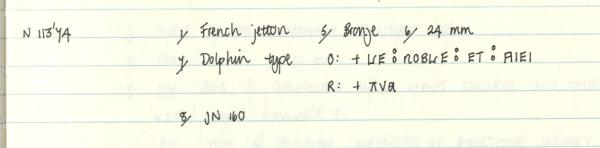 N 113'74 1/ French jetton 5/ Bronze 6/ 24 mm
y Dolphin type O: + LE ⦂ NOBLE ⦂ ET ⦂ AIEI
R: + AVE
8/ JN 160